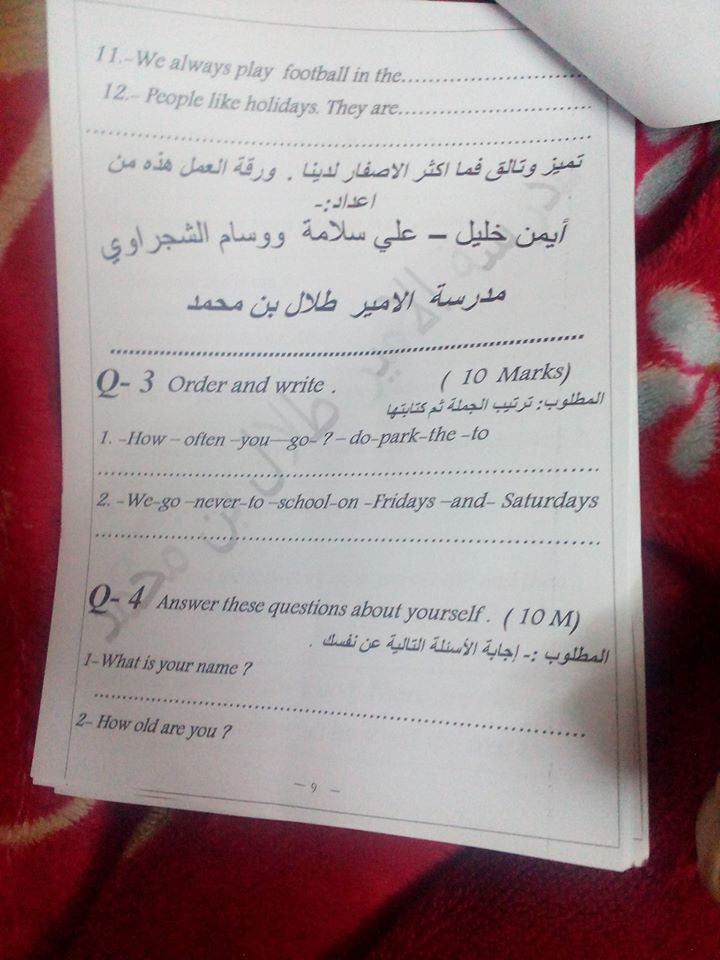 11.-We always play football in the..............................
12.- People like holidays. They are..............................
................................................................................
تميز وتالق فما اكثر الاصفار لدينا . ورقة العمل هذه من
اعداد:-
أيمن خليل – علي سلامة ووسام الشجراوي
مدرسة الامير طلال بن محمد
................................................................................
Q- 3 Order and write . ( 10 Marks)
المطلوب: ترتيب الجملة ثم كتابتها
1. -How – often –you—go- ? – do-park-the -to
................................................................................
2. -We-go –never-to –school-on -Fridays –and- Saturdays
................................................................................
Q- 4 Answer these questions about yourself . ( 10 M)
المطلوب :- إجابة الأسئلة التالية عن نفسك .
1-What is your name ?
................................................................................
2- How old are you ?
— 9 -
مدرسة الامير طلال بن محمد